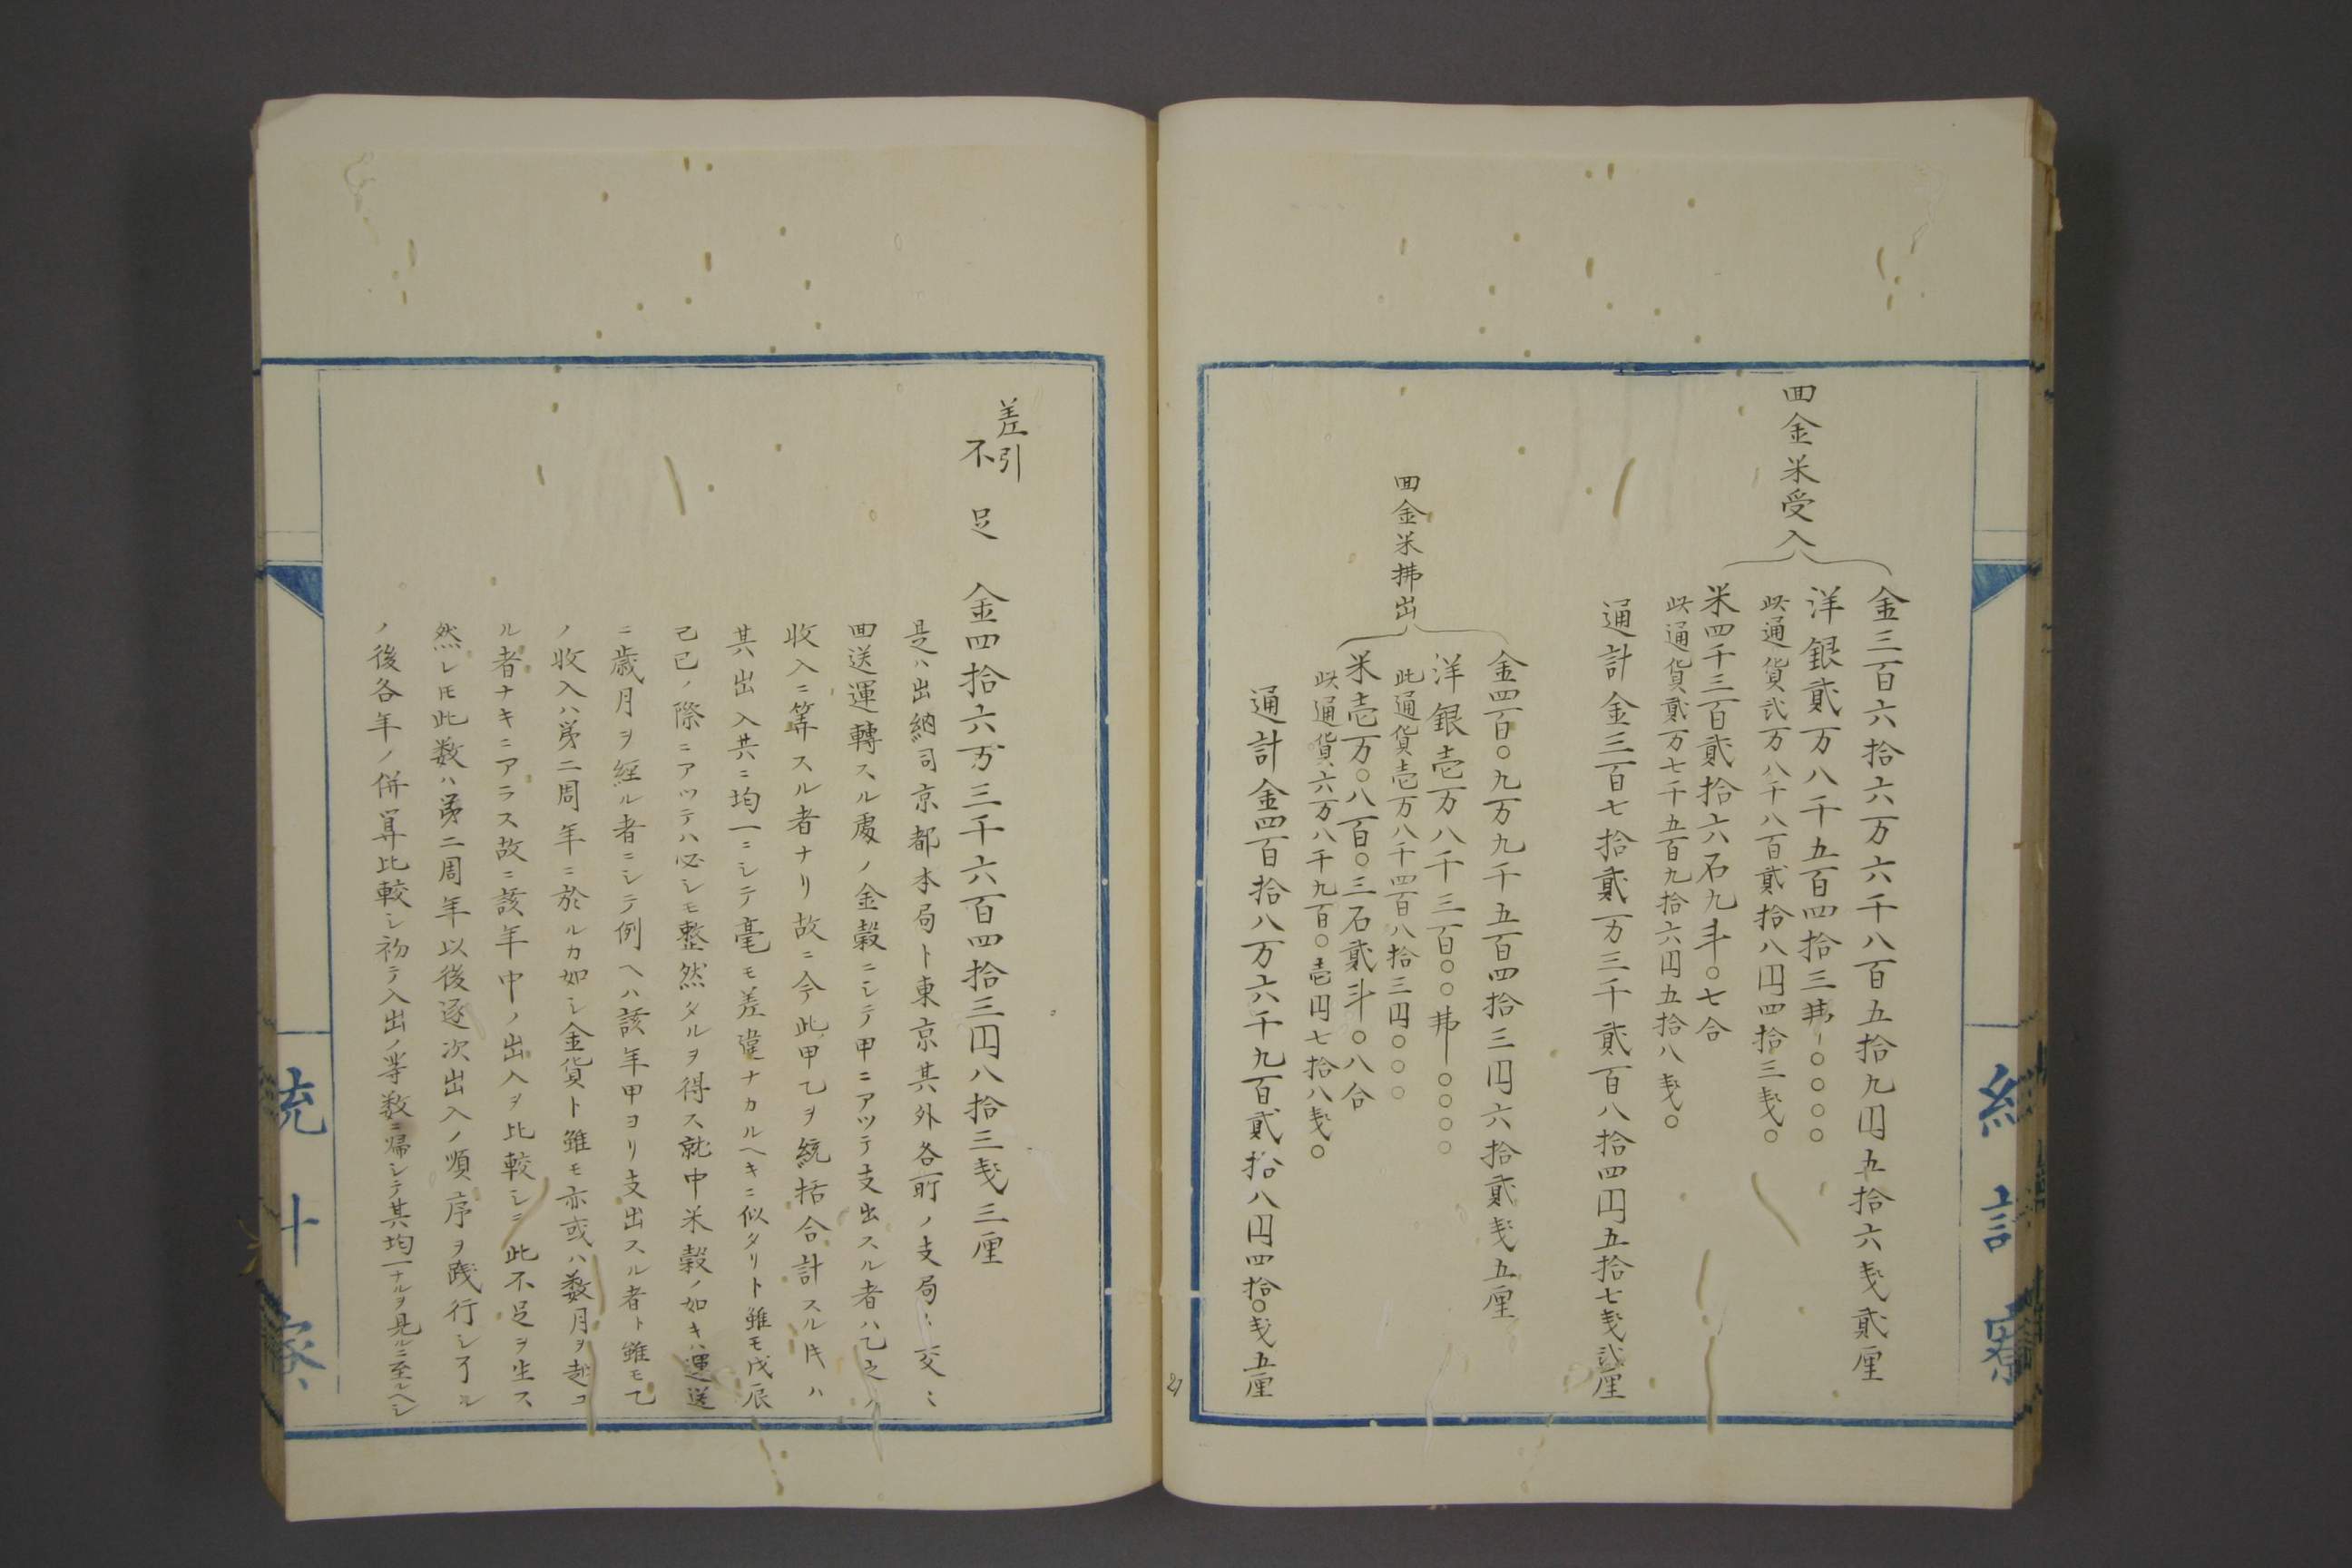 囬金米受入
金三百六拾六万六千八百五拾九円五拾六戔貳厘
洋銀貳万八千五百四拾三弗｜〇〇〇〇
此通貨弐万八千八百貳拾八円四拾三戔〇
米四千三百貳拾六石九斗〇七合
此通貨貳万七千五百九拾六円五拾八戔〇
通計金三百七拾貳万三千貳百八拾四円五拾七戔弐厘
囬金米拂出
金四百〇九万九千五百四拾三円六拾貳戔五厘
洋銀壱万八千三百〇〇弗｜〇〇〇〇
此通貨壱万八千四百八拾三円〇〇〇
米壱万〇八百〇三石貳斗〇八合
此通貨六万八千九百〇壱円七拾八戔〇
通計金四百拾八万六千九百貳拾八円四拾〇戔五厘
差引
不足 金四拾六万三千六百四拾三円八拾三戔三厘
是ハ出納司京都本局ト東京其外各所ノ支局ト交ミ
囬送運轉スル處ノ金穀ニシテ甲ニアツテ支出スル者ハ乙之ヲ
收入ニ筭スル者ナリ故ニ今此甲乙ヲ統括合計スル𪜈ハ
其出入共ニ均一ニシテ毫モ差違ナカルヘキニ似タリト雖モ戊辰
己巳ノ際ニアツテハ必シモ整然タルヲ得ス就中米穀ノ如キハ運送
ニ歳月ヲ經ル者ニシテ例ヘハ該年甲ヨリ支出スル者ト雖モ乙
ノ收入ハ第二周年ニ於ルカ如シ金貨ト雖モ亦或ハ数月ヲ越ユ
ル者ナキニアラス故ニ該年中ノ出入ヲ比較シテ此不足ヲ生ス
然レ𪜈此数ハ第二周年以後逐次出入ノ順序ヲ踐行シ了ル
ノ後各年ノ併算比較シ初テ入出ノ等数ニ帰シテ其均一ナルヲ見ルニ至ルヘシ
統計寮